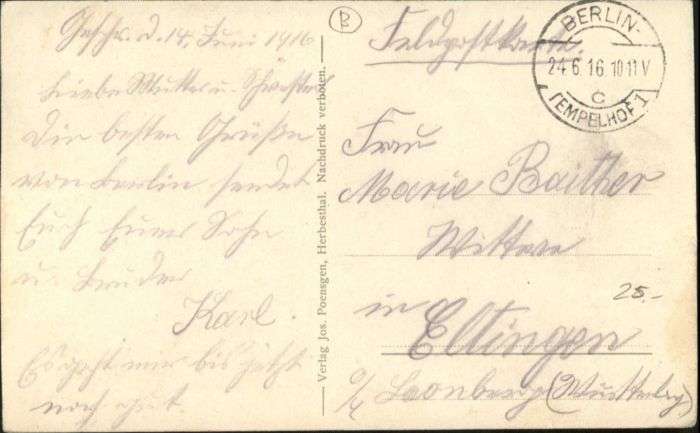 Geschr. d. 14. Juni 1916
Liebe Mutter u. Schwester
Die besten Grüße
von Berlin sendet
Euch Euer Sohn
u. Bruder
Karl.
Es geht mir bis jetzt
noch gut.
Verlag Jos. Poensgen, Herbesthal. Nachdruck verboten.
B
Feldpostkarte.
BERLIN-
24.6.16.10-11V
C
TEMPELHOF 1
Frau
Marie Baither
Witwe
in
25.-
Eltingen
O/A Leonberg (Württemberg)